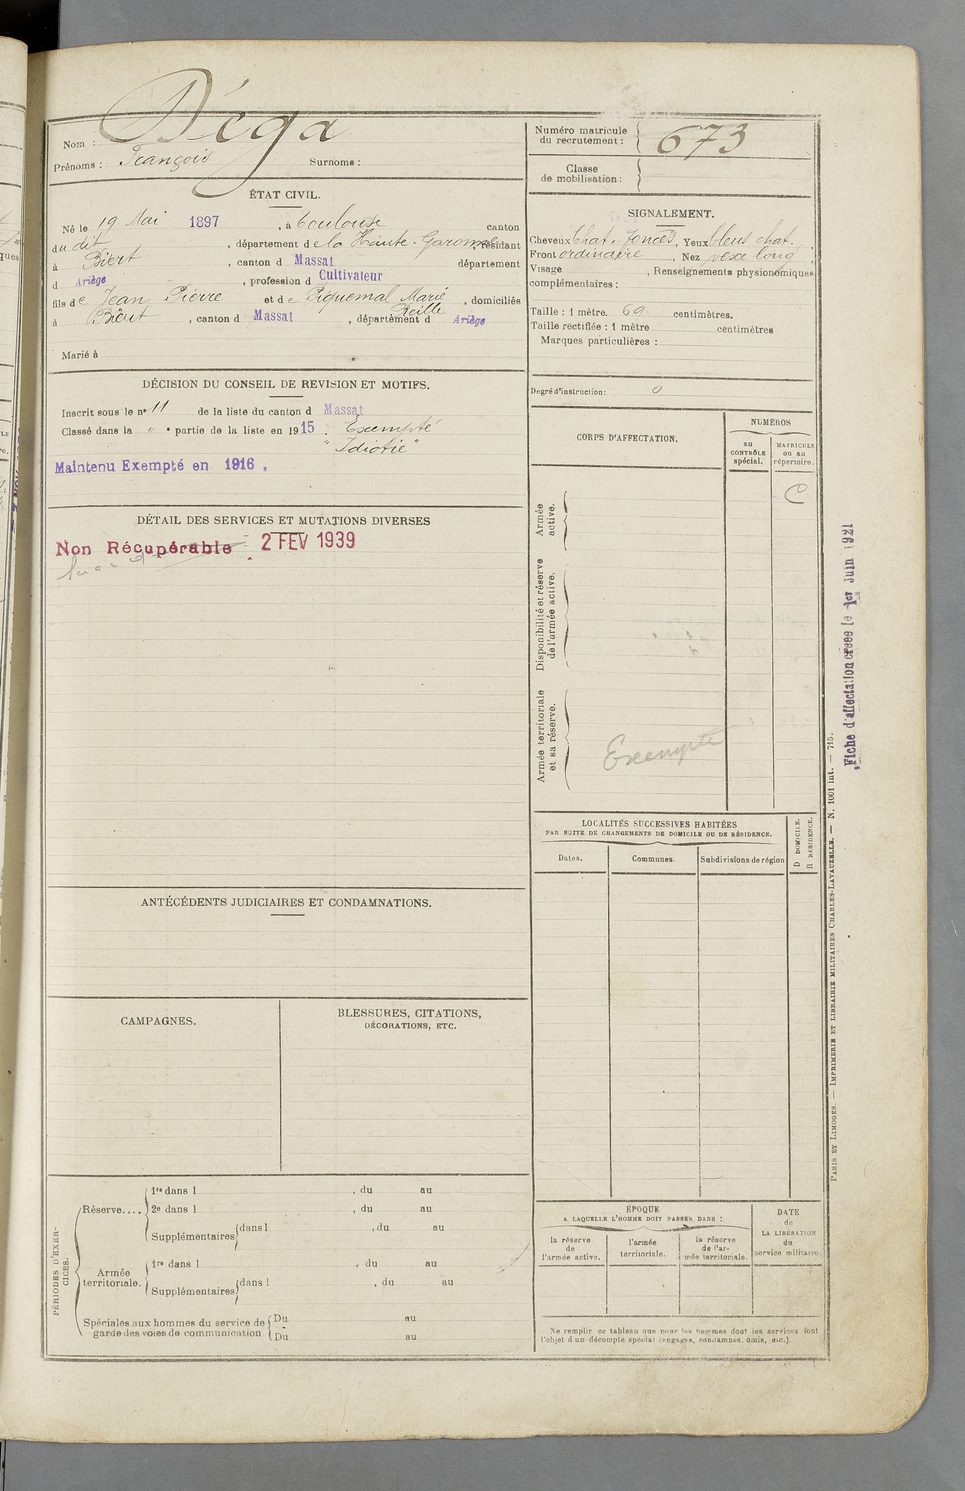 Nom : Déga
Prénoms : François Surnoms :
Numéro matricule du recrutement : 673
Classe de mobilisation :
ÉTAT CIVIL.
Né le 19 Mai 1897, à Toulouse canton
du dit, département de la Haute-Garonne, résidant
à Biert, canton d Massat département
d Ariège, profession d Cultivateur
fils de Jean Pierre et de Piquemal Marie, domiciliés
à Biert, canton d Massat, département d Ariège
Marié à
SIGNALEMENT.
Cheveux chat. foncés, Yeux bleus chat.
Front ordinaire, Nez vexe long
Visage , Renseignements physionomiques
complémentaires :
Taille : 1 mètre. 60 centimètres.
Taille rectifiée : 1 mètre centimètres
Marques particulières :
Degré d'instruction : 0
DÉCISION DU CONSEIL DE REVISION ET MOTIFS.
Inscrit sous le nº 11 de la liste du canton d Massat
Classé dans la " e partie de la liste en 1915 : Exempté
"Idiotie"
Maintenu Exempté en 1916.
DÉTAIL DES SERVICES ET MUTATIONS DIVERSES
Non Récupérable 2 FEV 1939
CORPS D'AFFECTATION.
NUMÉROS
au CONTRÔLE spécial.
MATRICULE ou au répertoire.
C
Armée active.
Disponibilité et réserve de l'armée active.
Armée territoriale et sa réserve.
Exempté
Fiche d'affectation créée le 1er Juin 1921
LOCALITÉS SUCCESSIVES HABITÉES
PAR SUITE DE CHANGEMENTS DE DOMICILE OU DE RÉSIDENCE.
Dates. Communes. Subdivisions de région
D DOMICILE.
R RÉSIDENCE.
ANTÉCÉDENTS JUDICIAIRES ET CONDAMNATIONS.
CAMPAGNES.
BLESSURES, CITATIONS,
DÉCORATIONS, ETC.
PÉRIODES D'EXERCICES.
Réserve.... 1re dans l , du au
2e dans l , du au
Supplémentaires dans l , du au
Armée territoriale. 1re dans l , du au
Supplémentaires dans l , du au
Spéciales aux hommes du service de garde des voies de communication
Du au
Du au
ÉPOQUE
A LAQUELLE L'HOMME DOIT PASSER DANS :
la réserve de l'armée active.
l'armée territoriale.
la réserve de l'armée territoriale.
DATE de LA LIBÉRATION du service militaire.
Ne remplir ce tableau que pour les hommes dont les services font
l'objet d'un décompte spécial (engagés, condamnés, omis, etc.).
PARIS ET LIMOGES. — IMPRIMERIE ET LIBRAIRIE MILITAIRES CHARLES-LAVAUZELLE. — N. 1001 int. — 715.